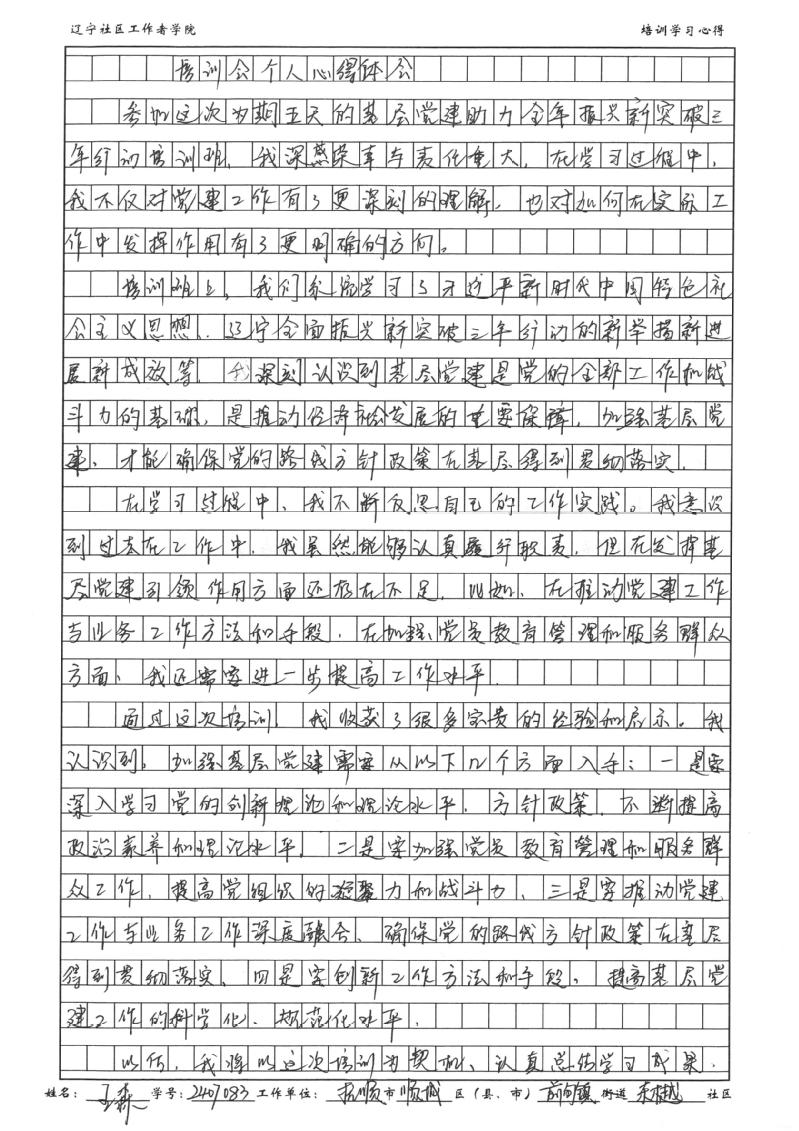 辽宁社区工作者学院 培训学习心得
培训会个人心得体会
参加这次为期五天的基层党建助力全年振兴新突破三
年行动培训班,我深感荣幸与责任重大,在学习过程中,
我不仅对党建工作有了更深刻的理解,也对如何在实际工
作中发挥作用有了更明确的方向。
培训班上,我们系统学习了习近平新时代中国特色社
会主义思想、辽宁全面振兴新突破三年行动的新举措新进
展新成效等,我深刻认识到基层党建是党的全部工作和战
斗力的基础,是推动经济社会发展的重要保障,加强基层党
建,才能确保党的路线方针政策在基层得到贯彻落实。
在学习过程中,我不断反思自己的工作实践。我意识
到过去在工作中,我虽然能够认真履行职责,但在发挥基
层党建引领作用方面还存在不足,比如,在推动党建工作
与业务工作方法和手段,在加强党员教育管理和服务群众
方面,我还需要进一步提高工作水平。
通过这次培训,我收获了很多宝贵的经验和启示。我
认识到,加强基层党建需要从以下几个方面入手:一是要
深入学习党的创新理论和理论水平,方针政策,不断提高
政治素养和理论水平,二是要加强党员教育管理和服务群
众工作,提高党组织的凝聚力和战斗力,三是要推动党建
工作与业务工作深度融合,确保党的路线方针政策在基层
得到贯彻落实,四是要创新工作方法和手段,提高基层党
建工作的科学化、规范化水平。
以后,我将以这次培训为契机,认真总结学习成果,
姓名:王森 学号:2407083 工作单位:抚顺市顺城区(县、市)前甸镇街道 社区